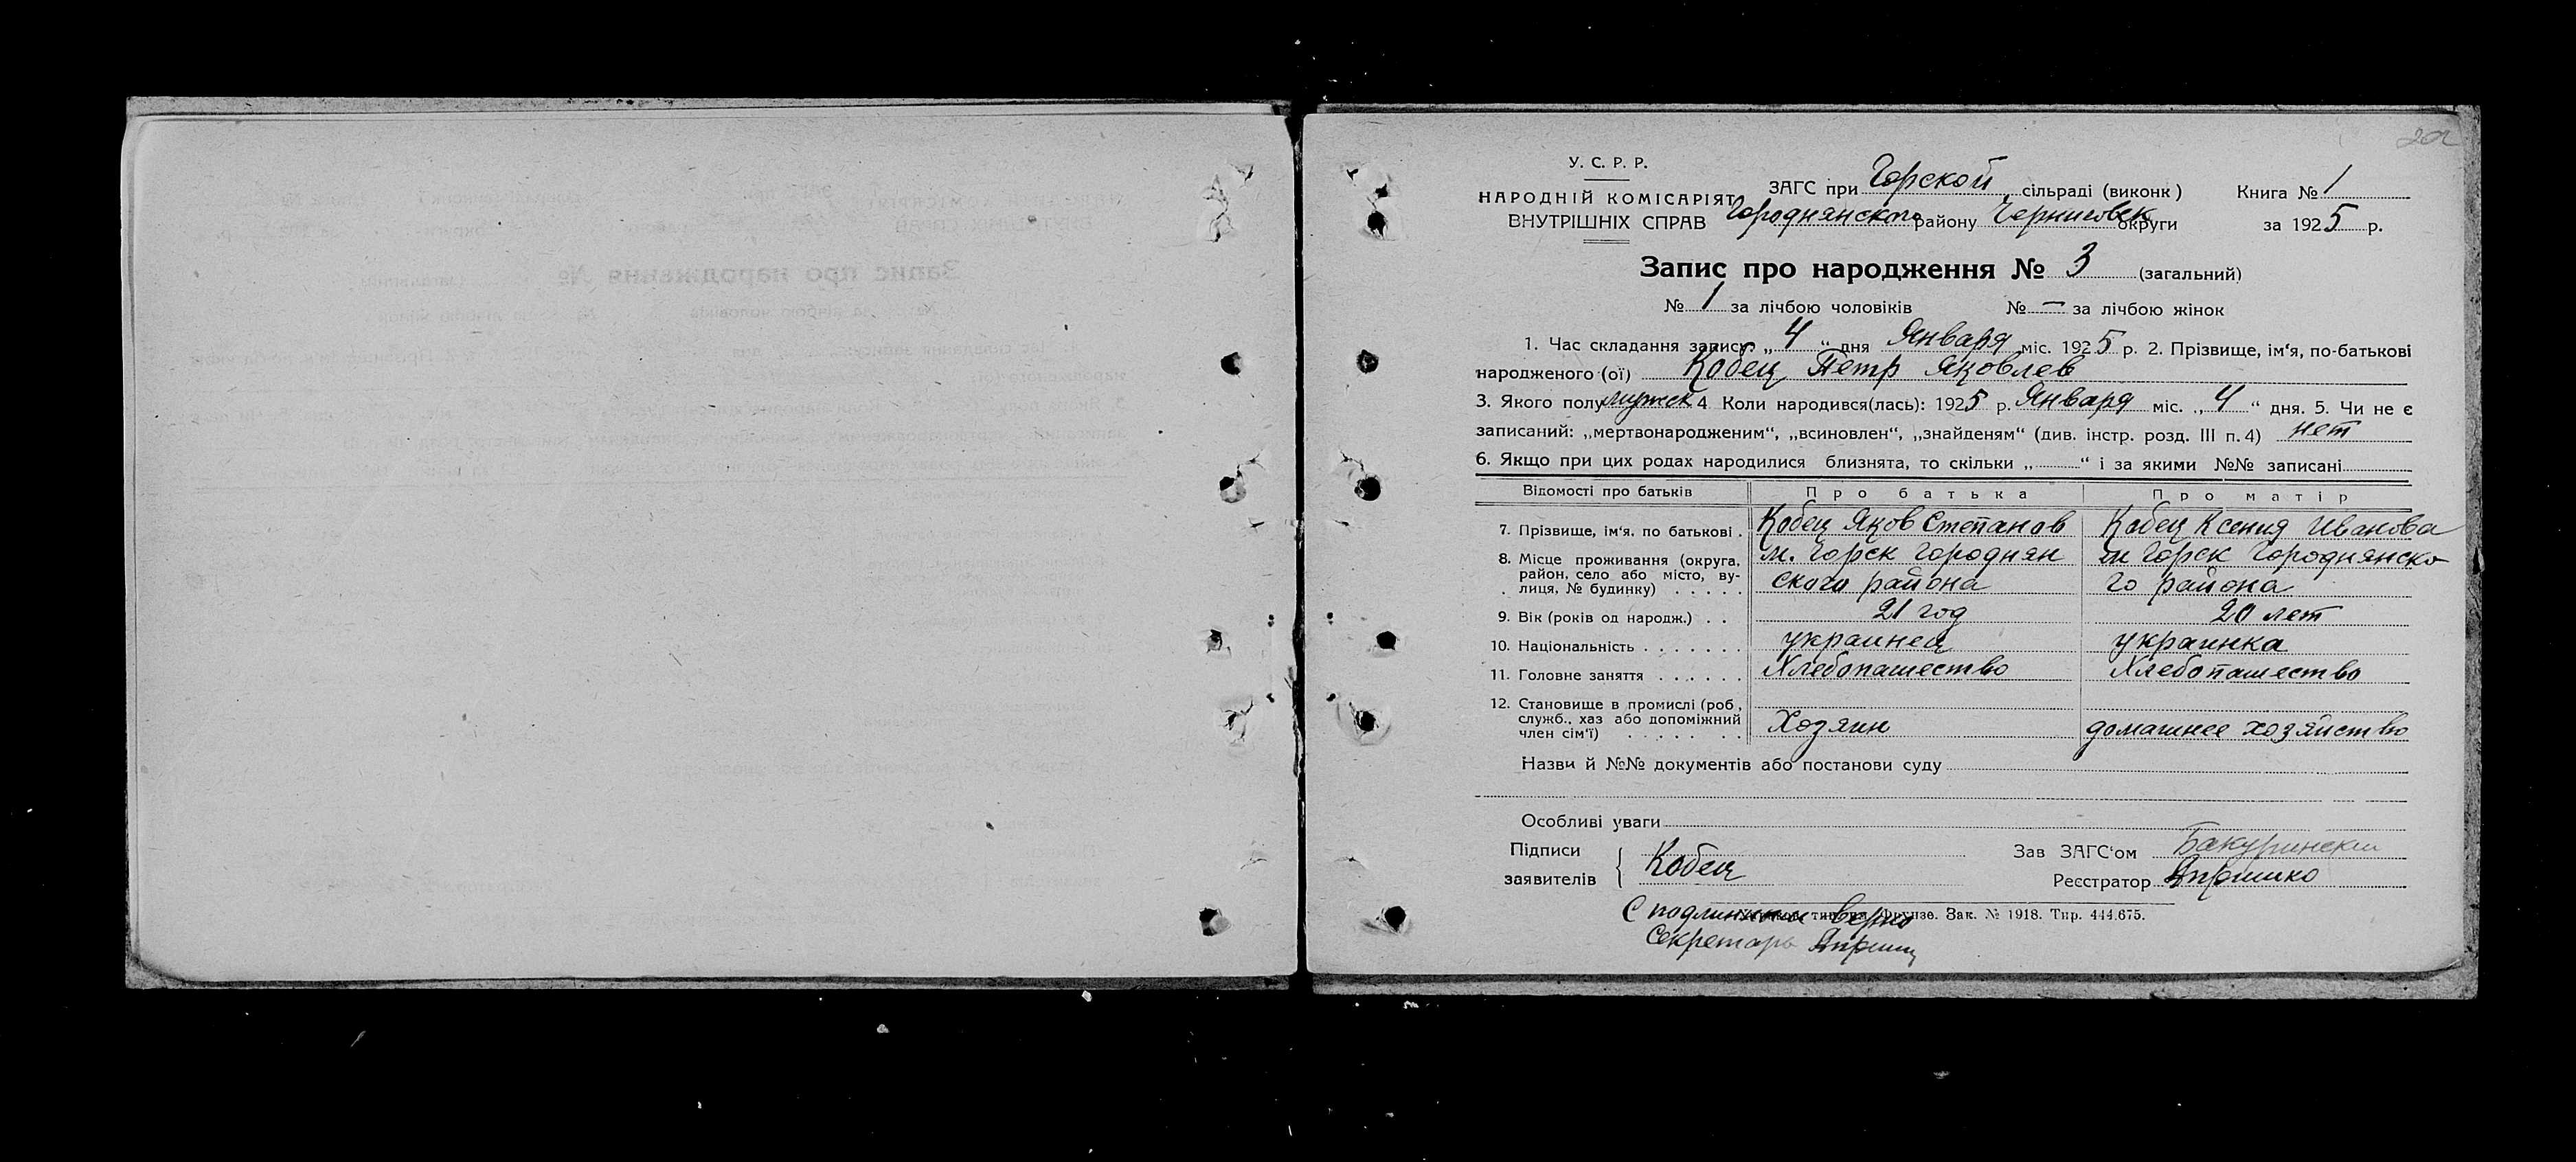 У. С. Р. Р.
НАРОДНІЙ КОМІСАРІЯТ
ВНУТРІШНІХ СПРАВ
ЗАГС при Горской сільраді (виконк)
Городнянского району Черниговск округи
Книга № 1
за 1925 р.
Запис про народження № 3 (загальний)
№ 1 за лічбою чоловіків № — за лічбою жінок
1. Час складання запису: „ 4 “ дня Января міс. 1925 р. 2. Прізвище, ім‘я, по-батькові
народженого (ої) Кобец Петр Яковлев
3. Якого полу мужск 4. Коли народився(лась): 1925 р. Января міс. „ 4 “ дня. 5. Чи не є
записаний: „мертвонародженим“, „всиновлен“, „знайденям“ (див. інстр. розд. III п. 4) нет
6. Якщо при цих родах народилися близнята, то скільки „ “ і за якими №№ записані
Відомості про батьків Про батька Про матір
7. Прізвище, ім‘я, по батькові . Кобец Яков Степанов Кобец Ксения Иванова
8. Місце проживання (округа, район, село або місто, ву- лиця, № будинку) . . . . . м. Горск Городнян ского района м Горск Городнянско го района
9. Вік (років од народж.) . . 21 год 20 лет
10. Національність . . . . . . . украинец украинка
11. Головне заняття . . . . . . Хлебопашество Хлебопашество
12. Становище в промислі (роб., служб., хаз або допоміжний член сім‘ї) . . . . . . . Хозяин домашнее хозяйство
Назви й №№ документів або постанови суду
Особливі уваги
Підписи
заявителів
Кобец
Зав ЗАГС‘ом Бакуринский
Реєстратор
С подлинным верно
типогр. Фрунзе. Зак. № 1918. Тир. 444.675.
Секретарь